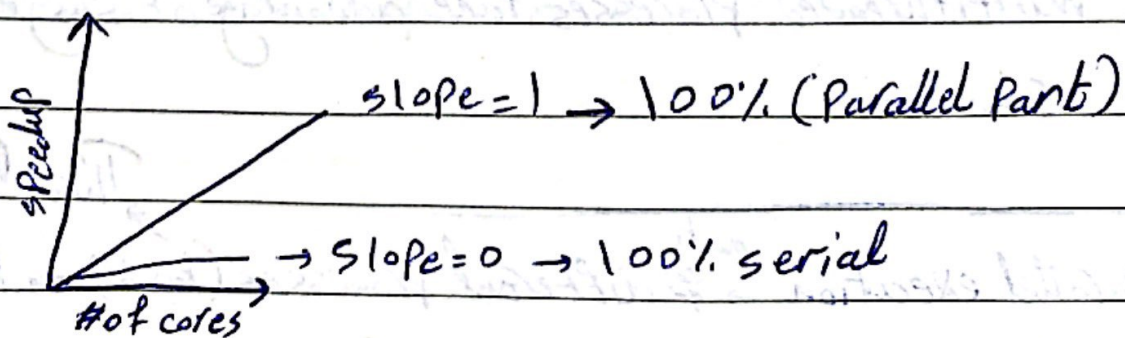 speedup
slope = 1 → 100% (Parallel Part)
→ slope = 0 → 100% serial
# of cores